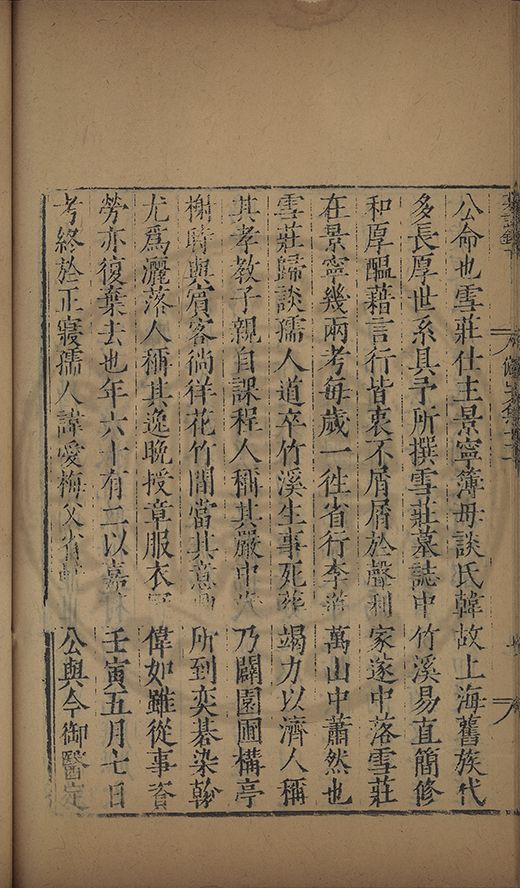 公命也雪莊仕主景寧簿母談氏韓故上海舊族代
多長厚世系具予所撰雪莊墓誌中竹溪易直簡修
和厚醞藉言行皆衷不屑屑於聲利家遂中落雪莊
在景寧幾兩考每歲一徃省行李萬山中蕭然也
雪莊歸談孺人道卒竹溪生事死葬竭力以濟人稱
其孝教子親自課程人稱其嚴中乃闢園圃構亭
榭時與賓客徜徉花竹間當其意所到奕碁染翰
尤爲灑落人稱其逸晚授章服衣偉如雖從事
勞亦復棄去也年六十有二以嘉壬寅五月七日
考終於正寢孺人諱愛梅父省公與今御醫定